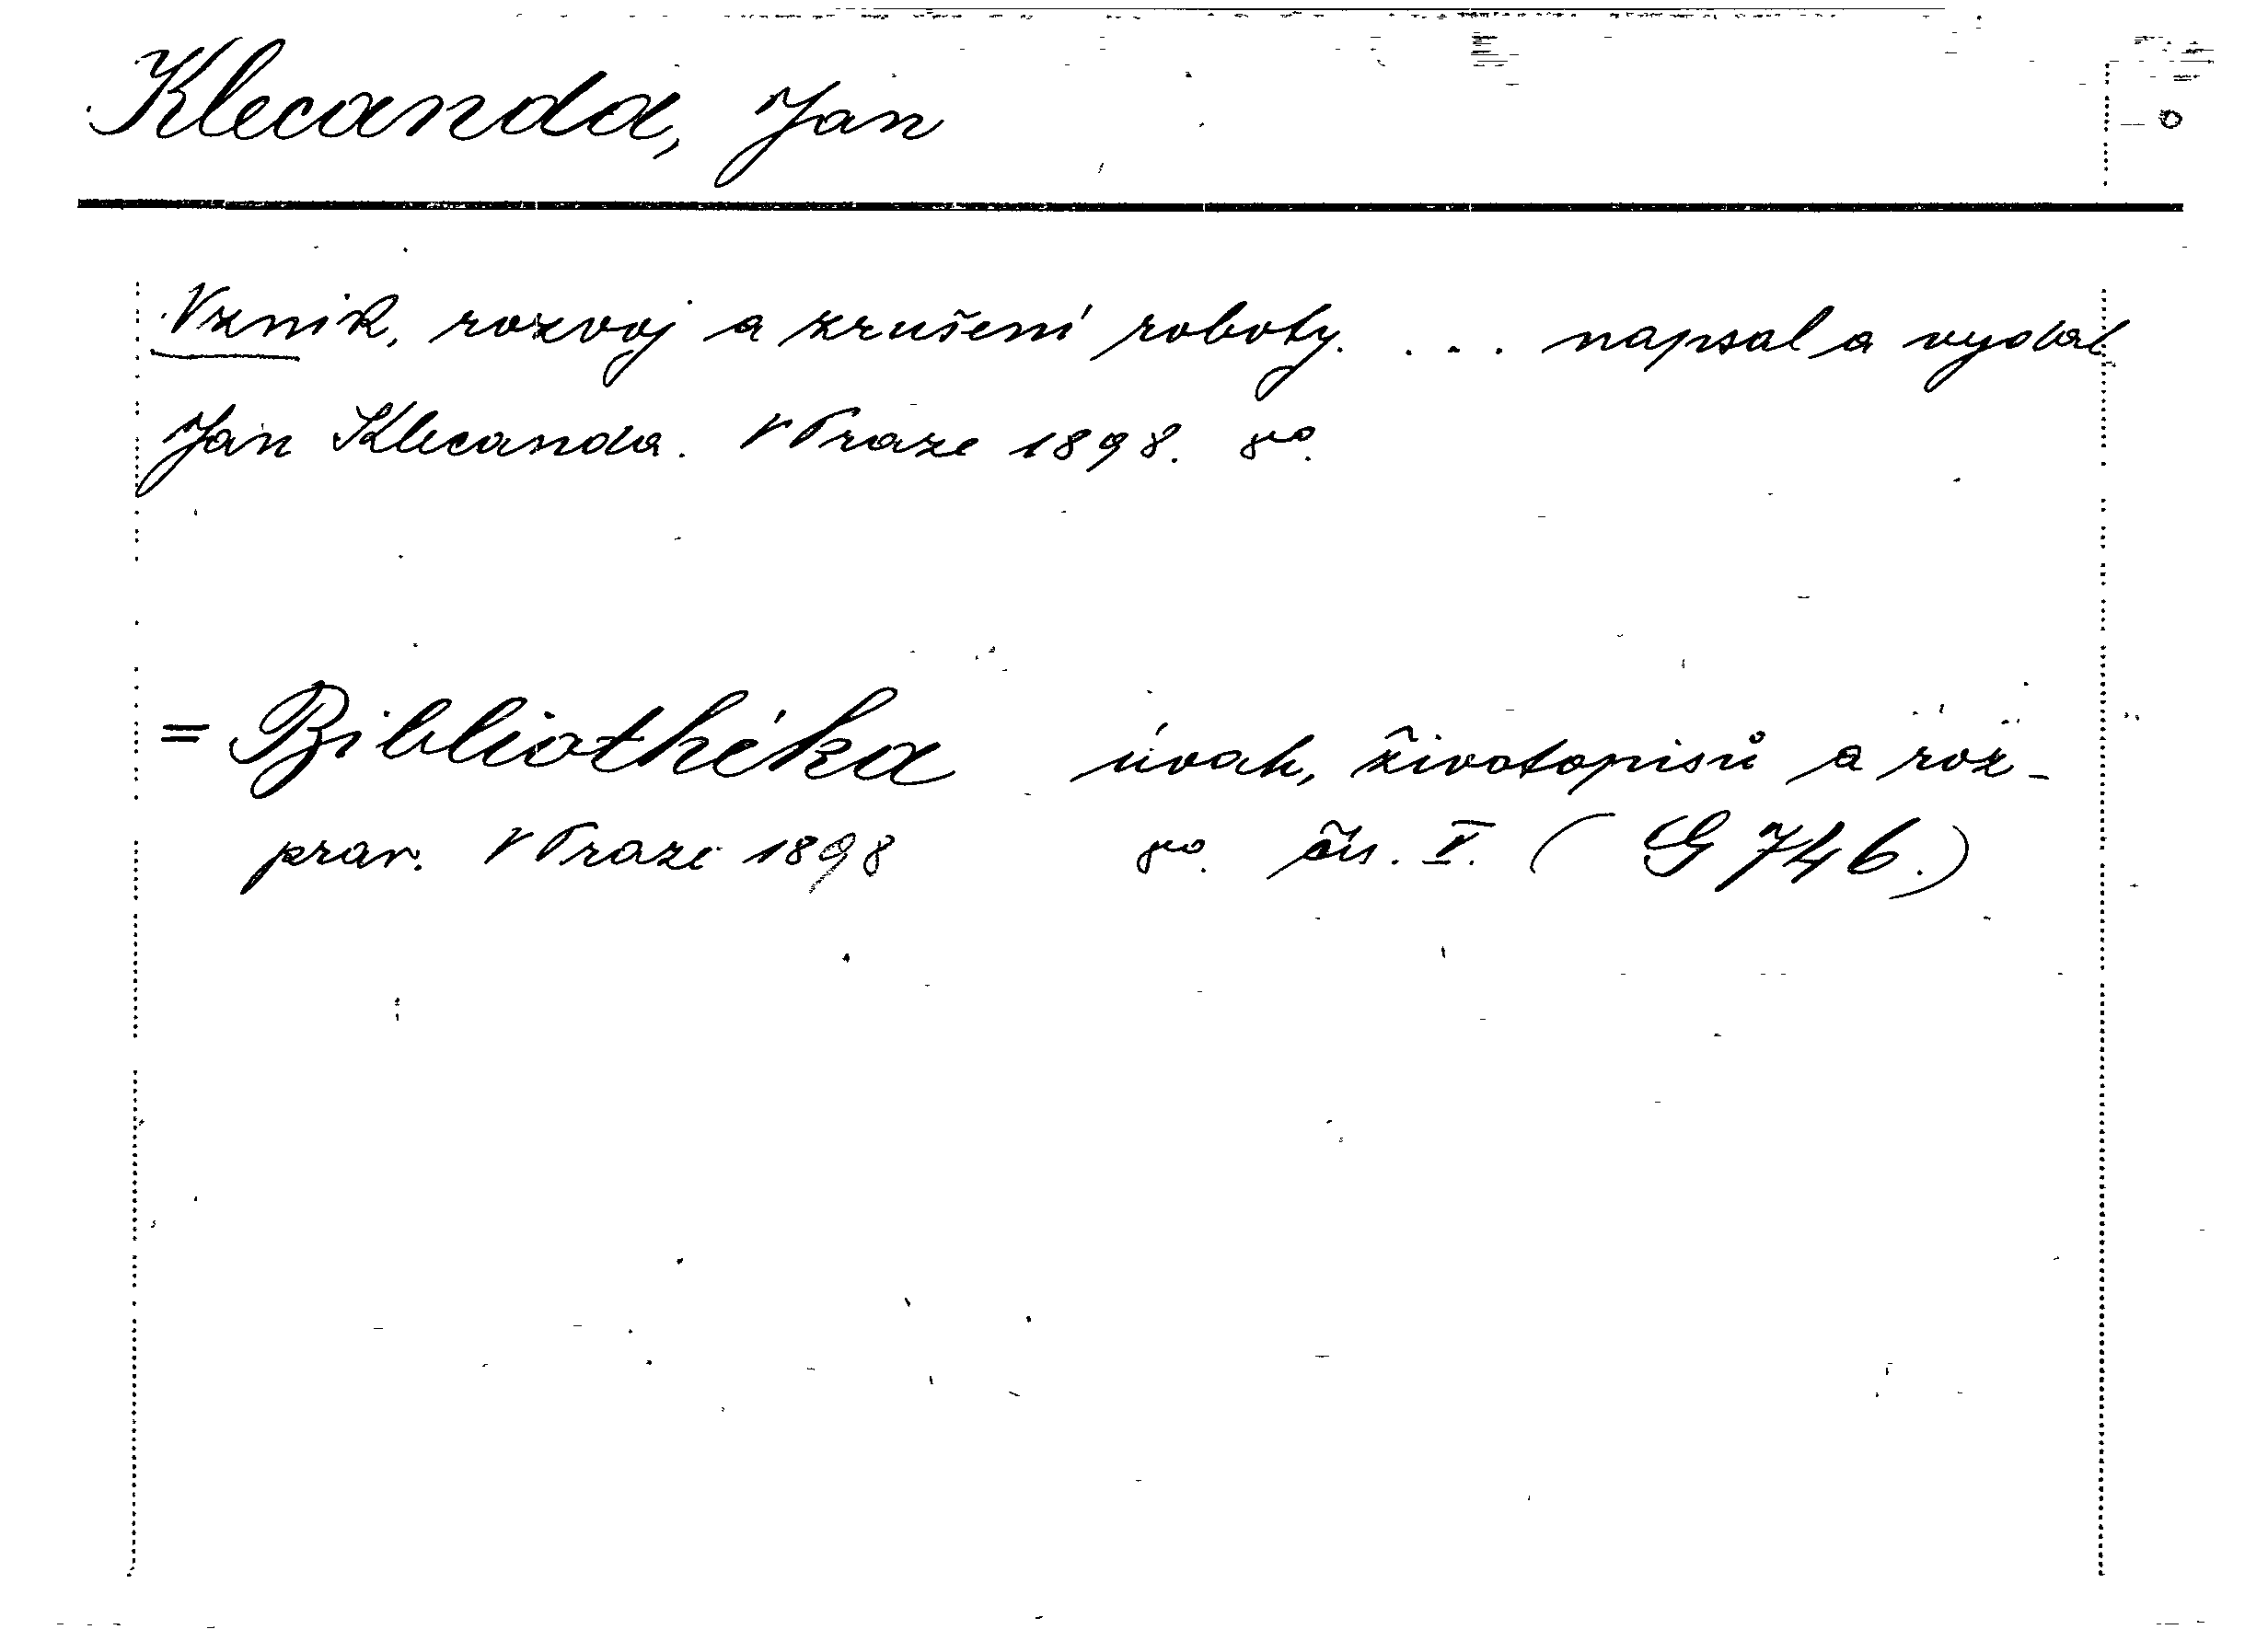 Klecanda, Jan
Vznik, rozvoj a zrušení roboty. ... napsal a vydal
Jan Klecanda. V Praze 1898. 8vo.
= Bibliothéka úvah, životopisů a roz-
prav. V Praze 1898 8vo. čís. V. (G 746.)